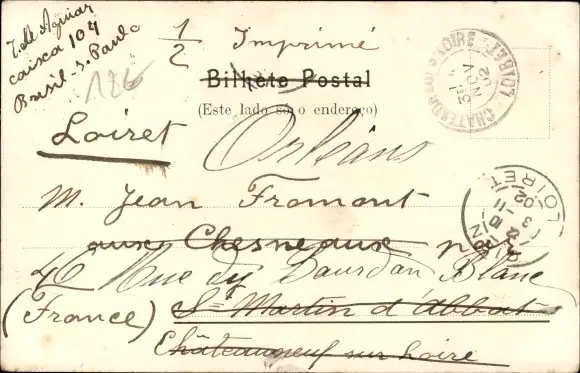 T. de Aguiar
caixa 104
Brésil - S. Paulo
186
1/2 Imprimé
Bilhete Postal
(Este lado só o endereço)
Loiret Orléans
M. Jean Fromont
aux Chesneaux par
46 Rue du Bourdon Blanc
St Martin d'Abbat
(France)
Châteauneuf sur Loire
CHATEAUNEUF S. LOIRE LOIRET
2 NOV
LOIRET
3 11 02